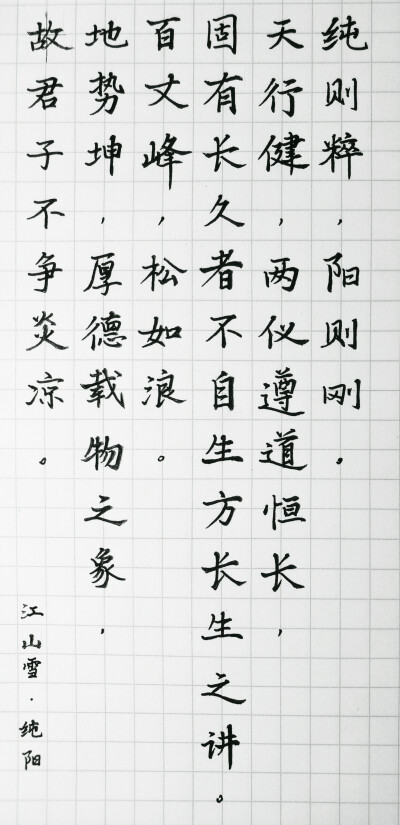 纯则粹，阳则刚。
天行健，两仪遵道恒长，
固有长久者不自生方长生之讲。
百丈峰，松如浪。
地势坤，厚德载物之象，
故君子不争炎凉。
江山雪·纯阳